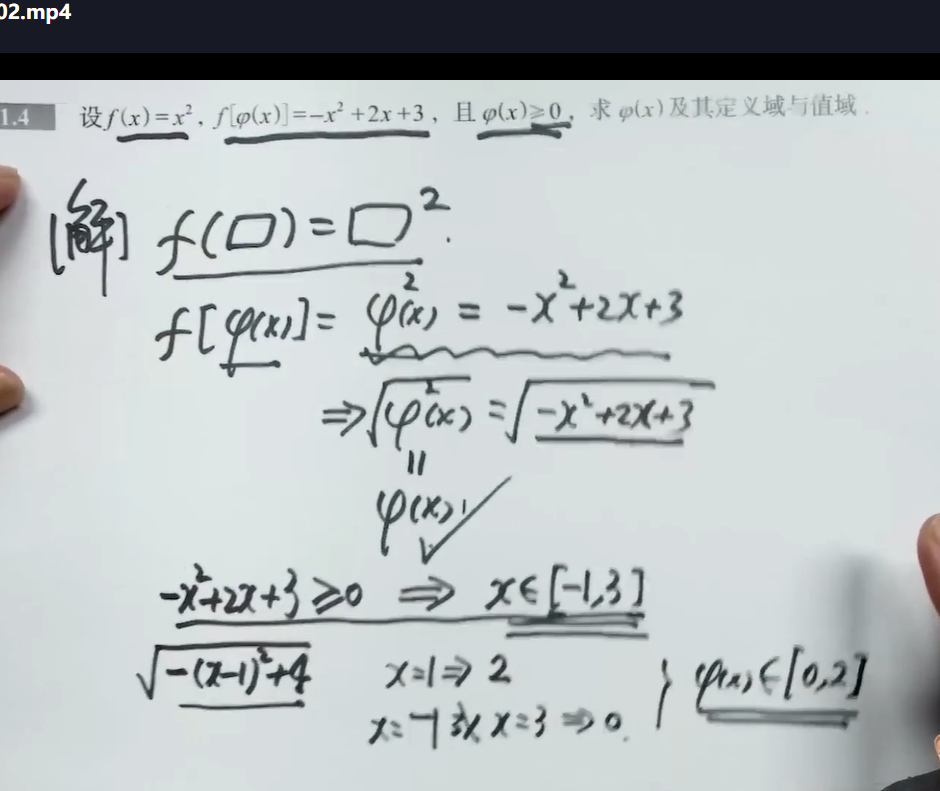 02.mp4
1.4 设f(x)=x², f[φ(x)]=-x²+2x+3, 且φ(x)≥0, 求φ(x)及其定义域与值域.
[解] f(□)=□².
f[φ(x)]=φ²(x)=-x²+2x+3
⇒√φ²(x)=√-x²+2x+3
||
φ(x)
-x²+2x+3≥0 ⇒ x∈[-1,3]
√-(x-1)²+4 x=1⇒2
x=-1或x=3⇒0.
} φ(x)∈[0,2]